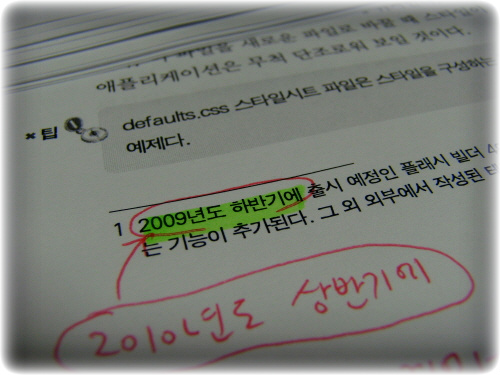 파일을 새로운 파일로 바꿀 때 스타일이
애플리케이션은 무척 단조로워 보일 것이다.
×팁
defaults.css 스타일시트 파일은 스타일을 구성하는
예제다.
1 2009년도 하반기에 출시 예정인 플래시 빌더 4
는 기능이 추가된다. 그 외 외부에서 작성된
2010년도 상반기에